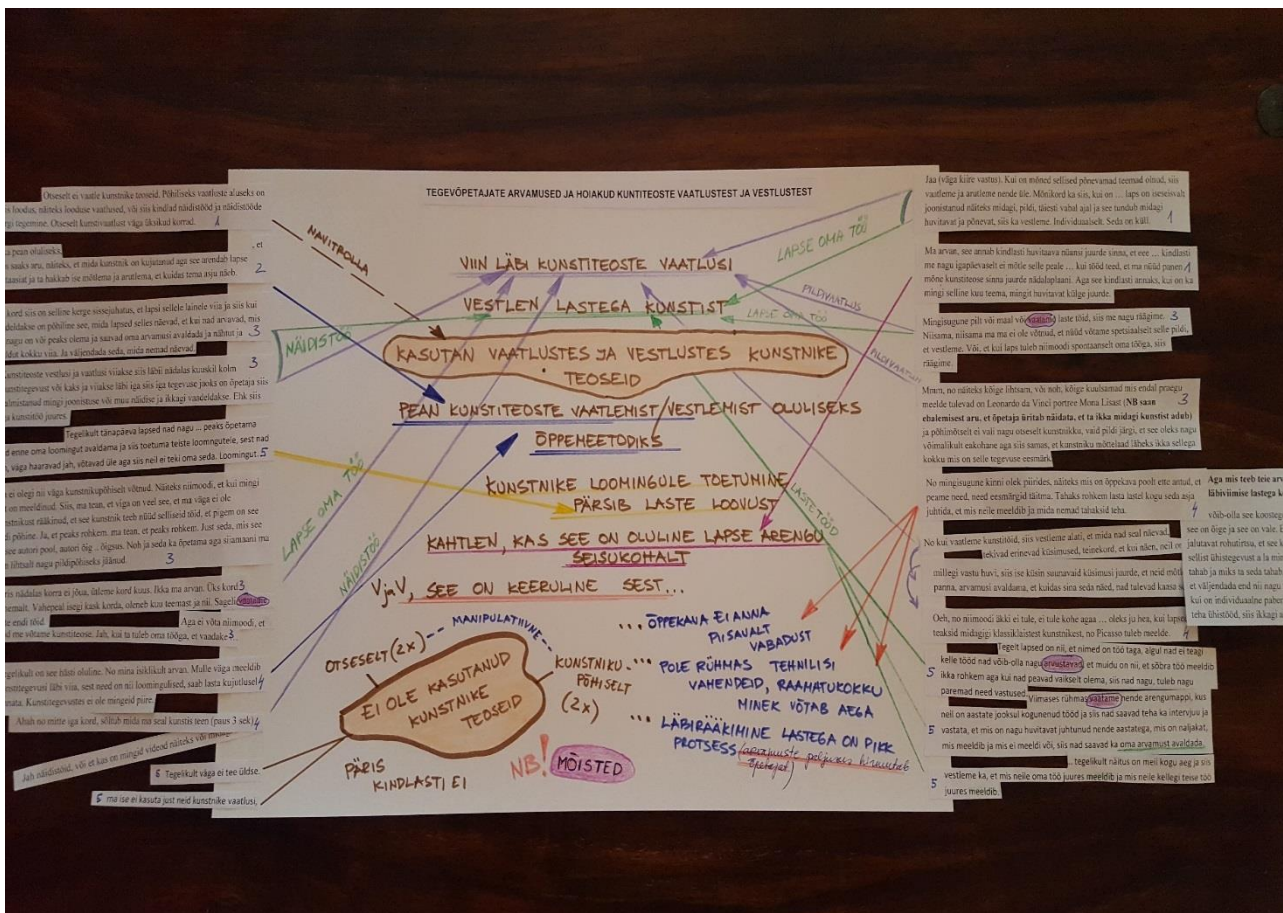 TEGEVÕPETAJATE ARVAMUSED JA HOIAKUD KUNTITEOSTE VAATLUSTEST JA VESTLUSTEST
NAVITROLLA
VIIN LÄBI KUNSTITEOSTE VAATLUSI
VESTLEN LASTEGA KUNSTIST
KASUTAN VAATLUSTES JA VESTLUSTES KUNSTNIKE
TEOSEID
PEAN KUNSTITEOSTE VAATLEMIST/VESTLEMIST OLULISEKS
ÕPPEMEETODIKS
KUNSTNIKE LOOMINGULE TOETUMINE
PÄRSIB LASTE LOOVUST
KAHTLEN, KAS SEE ON OLULINE LAPSE ARENGU
SEISUKOHALT
V ja V, SEE ON KEERULINE SEST...
... ÕPPEKAVA EI ANNA
PIISAVALT
VABADUST
... POLE RÜHMAS TEHNILISI
VAHENDEID, RAAMATUKOKKU
MINEK VÕTAB AEGA
... LÄBIRÄÄKIMINE LASTEGA ON PIKK
PROTSESS
MANIPULATIIVNE
OTSESELT (2x)
EI OLE KASUTANUD
KUNSTNIKE
TEOSEID
KUNSTNIKU
PÕHISELT
(2x)
PÄRIS
KINDLASTI EI
NB! MÕISTED
NÄIDISTÖÖ
LAPSE OMA TÖÖ
NÄIDISTÖÖ
LAPSE OMA TÖÖ
LAPSE OMA TÖÖ
PILDIVAATLUS
PILDIVAATLUS
LASTETÖÖD
Otseselt ei vaatle kunstnike teoseid. Põhiliseks vaatluste aluseks on
loodus, näiteks looduse vaatlused, või siis kindlad näidistööd ja näidistööde
tegemine. Otseselt kunstivaatlust väga üksikud korrad. 1
pean oluliseks
saaks aru, näiteks, et mida kunstnik on kujutanud aga see arendab lapse
ja ta hakkab ise mõtlema ja arutlema, et kuidas tema asju näeb. 2
kord siis on selline kerge sissejuhatus, et lapsi sellele lainele viia ja siis kui
on põhiline see, mida lapsed selles näevad, et kui nad arvavad, mis
nagu on või peaks olema ja saavad oma arvamusi avaldada ja nähtut ja 3
kokku viia. Ja väljendada seda, mida nemad näevad.
vestlusi ja vaatlusi viiakse siis läbi nädalas kuskil kolm 3
või kaks ja viiakse läbi iga siis iga tegevuse jaoks on õpetaja siis
mingi joonistuse või muu näidise ja ikkagi vaadeldakse. Ehk siis
kunstitöö juures.
Tegelikult tänapäeva lapsed nad nagu ... peaks õpetama
enne oma loomingut avaldama ja siis toetuma teiste loomingutele, sest nad
väga haaravad jah, võtavad üle aga siis neil ei teki oma seda. Loomingut. 5
ei olegi nii väga kunstnikupõhiselt võtnud. Näiteks niimoodi, et kui mingi
on meeldinud. Siis, ma tean, et viga on veel see, et ma väga ei ole
rääkinud, et see kunstnik teeb nüüd selliseid töid, et pigem on see
põhine. Ja, et peaks rohkem, ma tean, et peaks rohkem. Just seda, mis see
see autori pool, autori õig .. õigsus. Noh ja seda ka õpetama aga siiamaani ma
lihtsalt nagu pildipõhiseks jäänud. 3
nädalas korra ei jõua, ütleme kord kuus. Ikka ma arvan. Üks kord 3
Vahepeal isegi kaks korda, oleneb kuu teemast ja nii. Sageli vaatame
endi töid. Aga ei võta niimoodi, et
me võtame kunstiteose. Jah, kui ta tuleb oma tööga, et vaadake 3
see hästi oluline. No mina isiklikult arvan. Mulle väga meeldib
läbi viia, sest need on nii loomingulised, saab lasta kujutlusel 4
Kunstitegevustes ei ole mingeid piire.
Ahah no mitte iga kord, sõltub mida ma seal kunstis teen (paus 3 sek) 4
Jah näidistöid, või et kas on mingid videod näiteks või
6 Tegelikult väga ei tee üldse.
6 ma ise ei kasuta just neid kunstnike vaatlusi,
Jaa (väga kiire vastus). Kui on mõned sellised põnevamad teemad olnud, siis
vaatleme ja arutleme nende üle. Mõnikord ka siis, kui on ... laps on iseseisvalt
joonistanud näiteks midagi, pildi, täiesti vabal ajal ja see tundub midagi
huvitavat ja põnevat, siis ka vestleme. Individuaalselt. Seda on küll. 1
Ma arvan, see annab kindlasti huvitava nüansi juurde sinna, et eee ... kindlasti
me nagu igapäevaselt ei mõtle selle peale ... kui tööd teed, et ma nüüd panen 1
mõne kunstiteose sinna juurde nädalaplaani. Aga see kindlasti annaks, kui on ka
mingi selline kuu teema, mingit huvitavat külge juurde.
Mingisugune pilt või maal või vaatame laste töid, siis me nagu räägime. 3
Niisama, niisama ma ei ole võtnud, et nüüd võtame spetsiaalselt selle pildi,
et vestleme. Või, et kui laps tuleb niimoodi spontaanselt oma tööga, siis
räägime.
Mmm, no näiteks kõige lihtsam, või noh, kõige kuulsamad mis endal praegu
meelde tulevad on Leonardo da Vinci portree Mona Lisast (NB saan 3
ehalemisest aru, et õpetaja üritab näidata, et ta ikka midagi kunstist adub)
ja põhimõtselt ei vali nagu otseselt kunstnikku, vaid pildi järgi, et see oleks nagu
võimalikult eakohane aga siis samas, et kunstniku mõttelaad läheks ikka sellega
kokku mis on selle tegevuse eesmärk.
No mingisugune kinni olek piirides, näiteks mis on õppekava poolt ette antud, et
peame need, need eesmärgid täitma. Tahaks rohkem lasta lastel kogu seda asja
juhtida, et mis neile meeldib ja mida nemad tahaksid teha. 4
No kui vaatleme kunstitöid, siis vestleme alati, et mida nad seal näevad.
tekivad erinevad küsimused, teinekord, et kui näen, neil on
millegi vastu huvi, siis ise küsin suunavaid küsimusi juurde, et neid mõtlema
panna, arvamusi avaldama, et kuidas sina seda näed, nad tulevad kaasa
Oeh, no niimoodi äkki ei tule, ei tule kohe agaa ... oleks ju hea, kui lapsed
teaksid midagigi klassiklistest kunstnikest, no Picasso tuleb meelde. 4
Tegelt lapsed on nii, et nimed on töö taga, algul nad ei teagi
kelle tööd nad võib-olla nagu arvustavad, et muidu on nii, et sõbra töö meeldib
5 ikka rohkem aga kui nad peavad vaikselt olema, siis nad nagu, tuleb nagu
paremad need vastused.
Viimases rühmas vaatame nende arengumappi, kus
neil on aastate jooksul kogunenud tööd ja siis nad saavad teha ka intervjuu ja
5 vastata, et mis on nagu huvitavat juhtunud nende aastatega, mis on naljakat,
mis meeldib ja mis ei meeldi või, siis nad saavad ka oma arvamust avaldada.
... tegelikult näitus on meil kogu aeg ja siis
5 vestleme ka, et mis neile oma töö juures meeldib ja mis neile kellegi teise töö
juures meeldib.
Aga mis teeb teie
läbiviimise lastega
võib-olla see
see on õige ja see on vale.
sellist ühistegevust a la
tahab ja miks ta seda tahab
et väljendada end nii nagu
kui on individuaalne
teha ühistööd, siis ikkagi